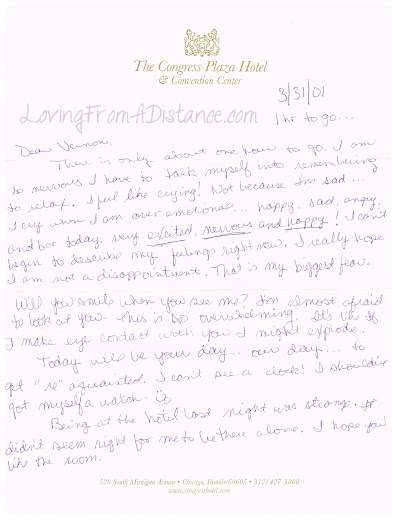 The Congress Plaza Hotel
& Convention Center
3/31/01
LovingFromADistance.com
1 hr to go...
Dear Vernon,
There is only about one hour to go. I am
so nervous I have to talk myself into remembering
to relax. I feel like crying! Not because I'm sad...
I cry when I am over emotional... happy, sad, angry,
and for today very excited, nervous and happy! I can't
begin to describe my feelings right now. I really hope
I am not a disappointment. That is my biggest fear.
Will you smile when you see me? I'm almost afraid
to look at you - this is so overwhelming. It's like if
I make eye contact with you I might explode.
Today will be your day... our day... to
get "re" aquainted. I can't see a clock! I should've
got myself a watch.
Being at the hotel last night was strange. It
didn't seem right for me to be there alone. I hope you
like the room.
520 South Michigan Avenue • Chicago, Illinois 60605 • 312/427-3800
www.congresshotel.com